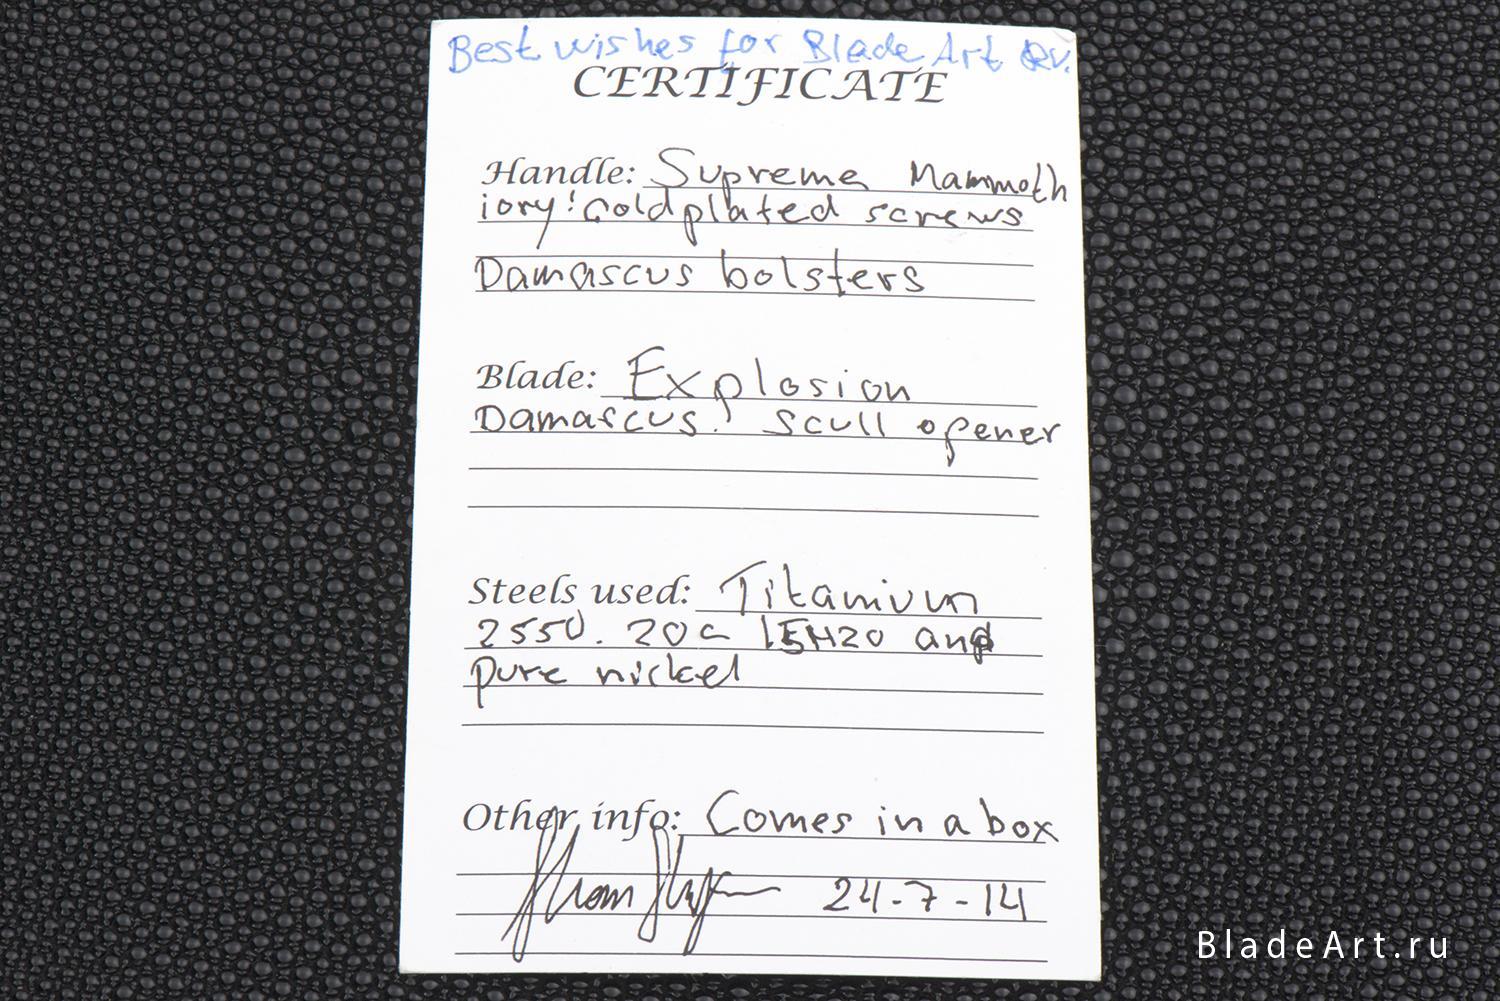 Best wishes for Blade Art
CERTIFICATE
Handle: Supreme Mammoth
iory! Goldplated screws
Damascus bolsters
Blade: Explosion
Damascus! Scull opener
Steels used: Titanium
2550. 20C 15H20 and
pure nickel
Other info: Comes in a box
24-7-14
BladeArt.ru